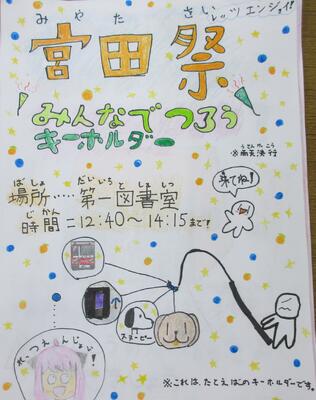 みやた さい レッツエンジョイ!
宮田祭
みんなでつろう
キーホルダー
うてんけっこう
※雨天決行
ばしょ だいいち としょしつ
場所‥‥第一図書室
来てね!
じかん
時間=12:40〜14:15まで!
スヌーピー
れっつえんじょい!
※これは、たとえばのキーホルダーです。